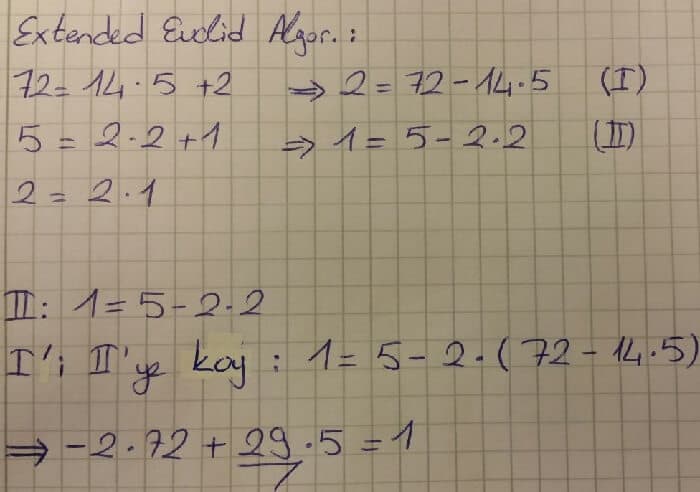 Extended Euclid Algor.:
72 = 14 · 5 + 2 ⇒ 2 = 72 - 14 · 5 (I)
5 = 2 · 2 + 1 ⇒ 1 = 5 - 2 · 2 (II)
2 = 2 · 1
II: 1 = 5 - 2 · 2
I'i II'ye koy : 1 = 5 - 2 · (72 - 14 · 5)
⇒ -2 · 72 + 29 · 5 = 1